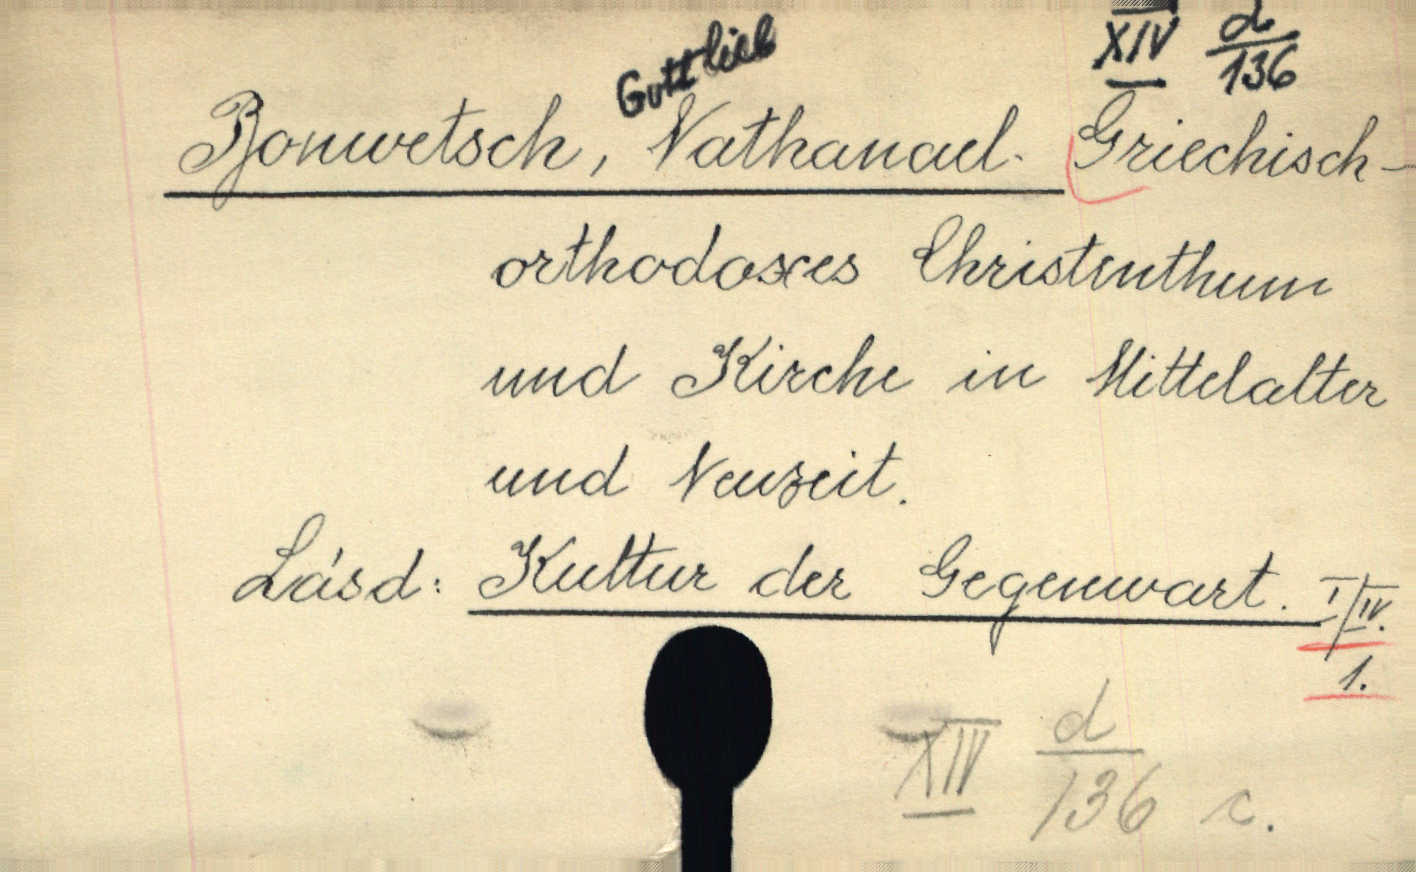 XIV d/136
Gottlieb
Bonwetsch, Nathanael. Griechisch-
orthodoxes Christenthum
und Kirche in Mittelalter
und Neuzeit.
Lásd: Kultur der Gegenwart. I/IV.
1.
XIV d/136 c.